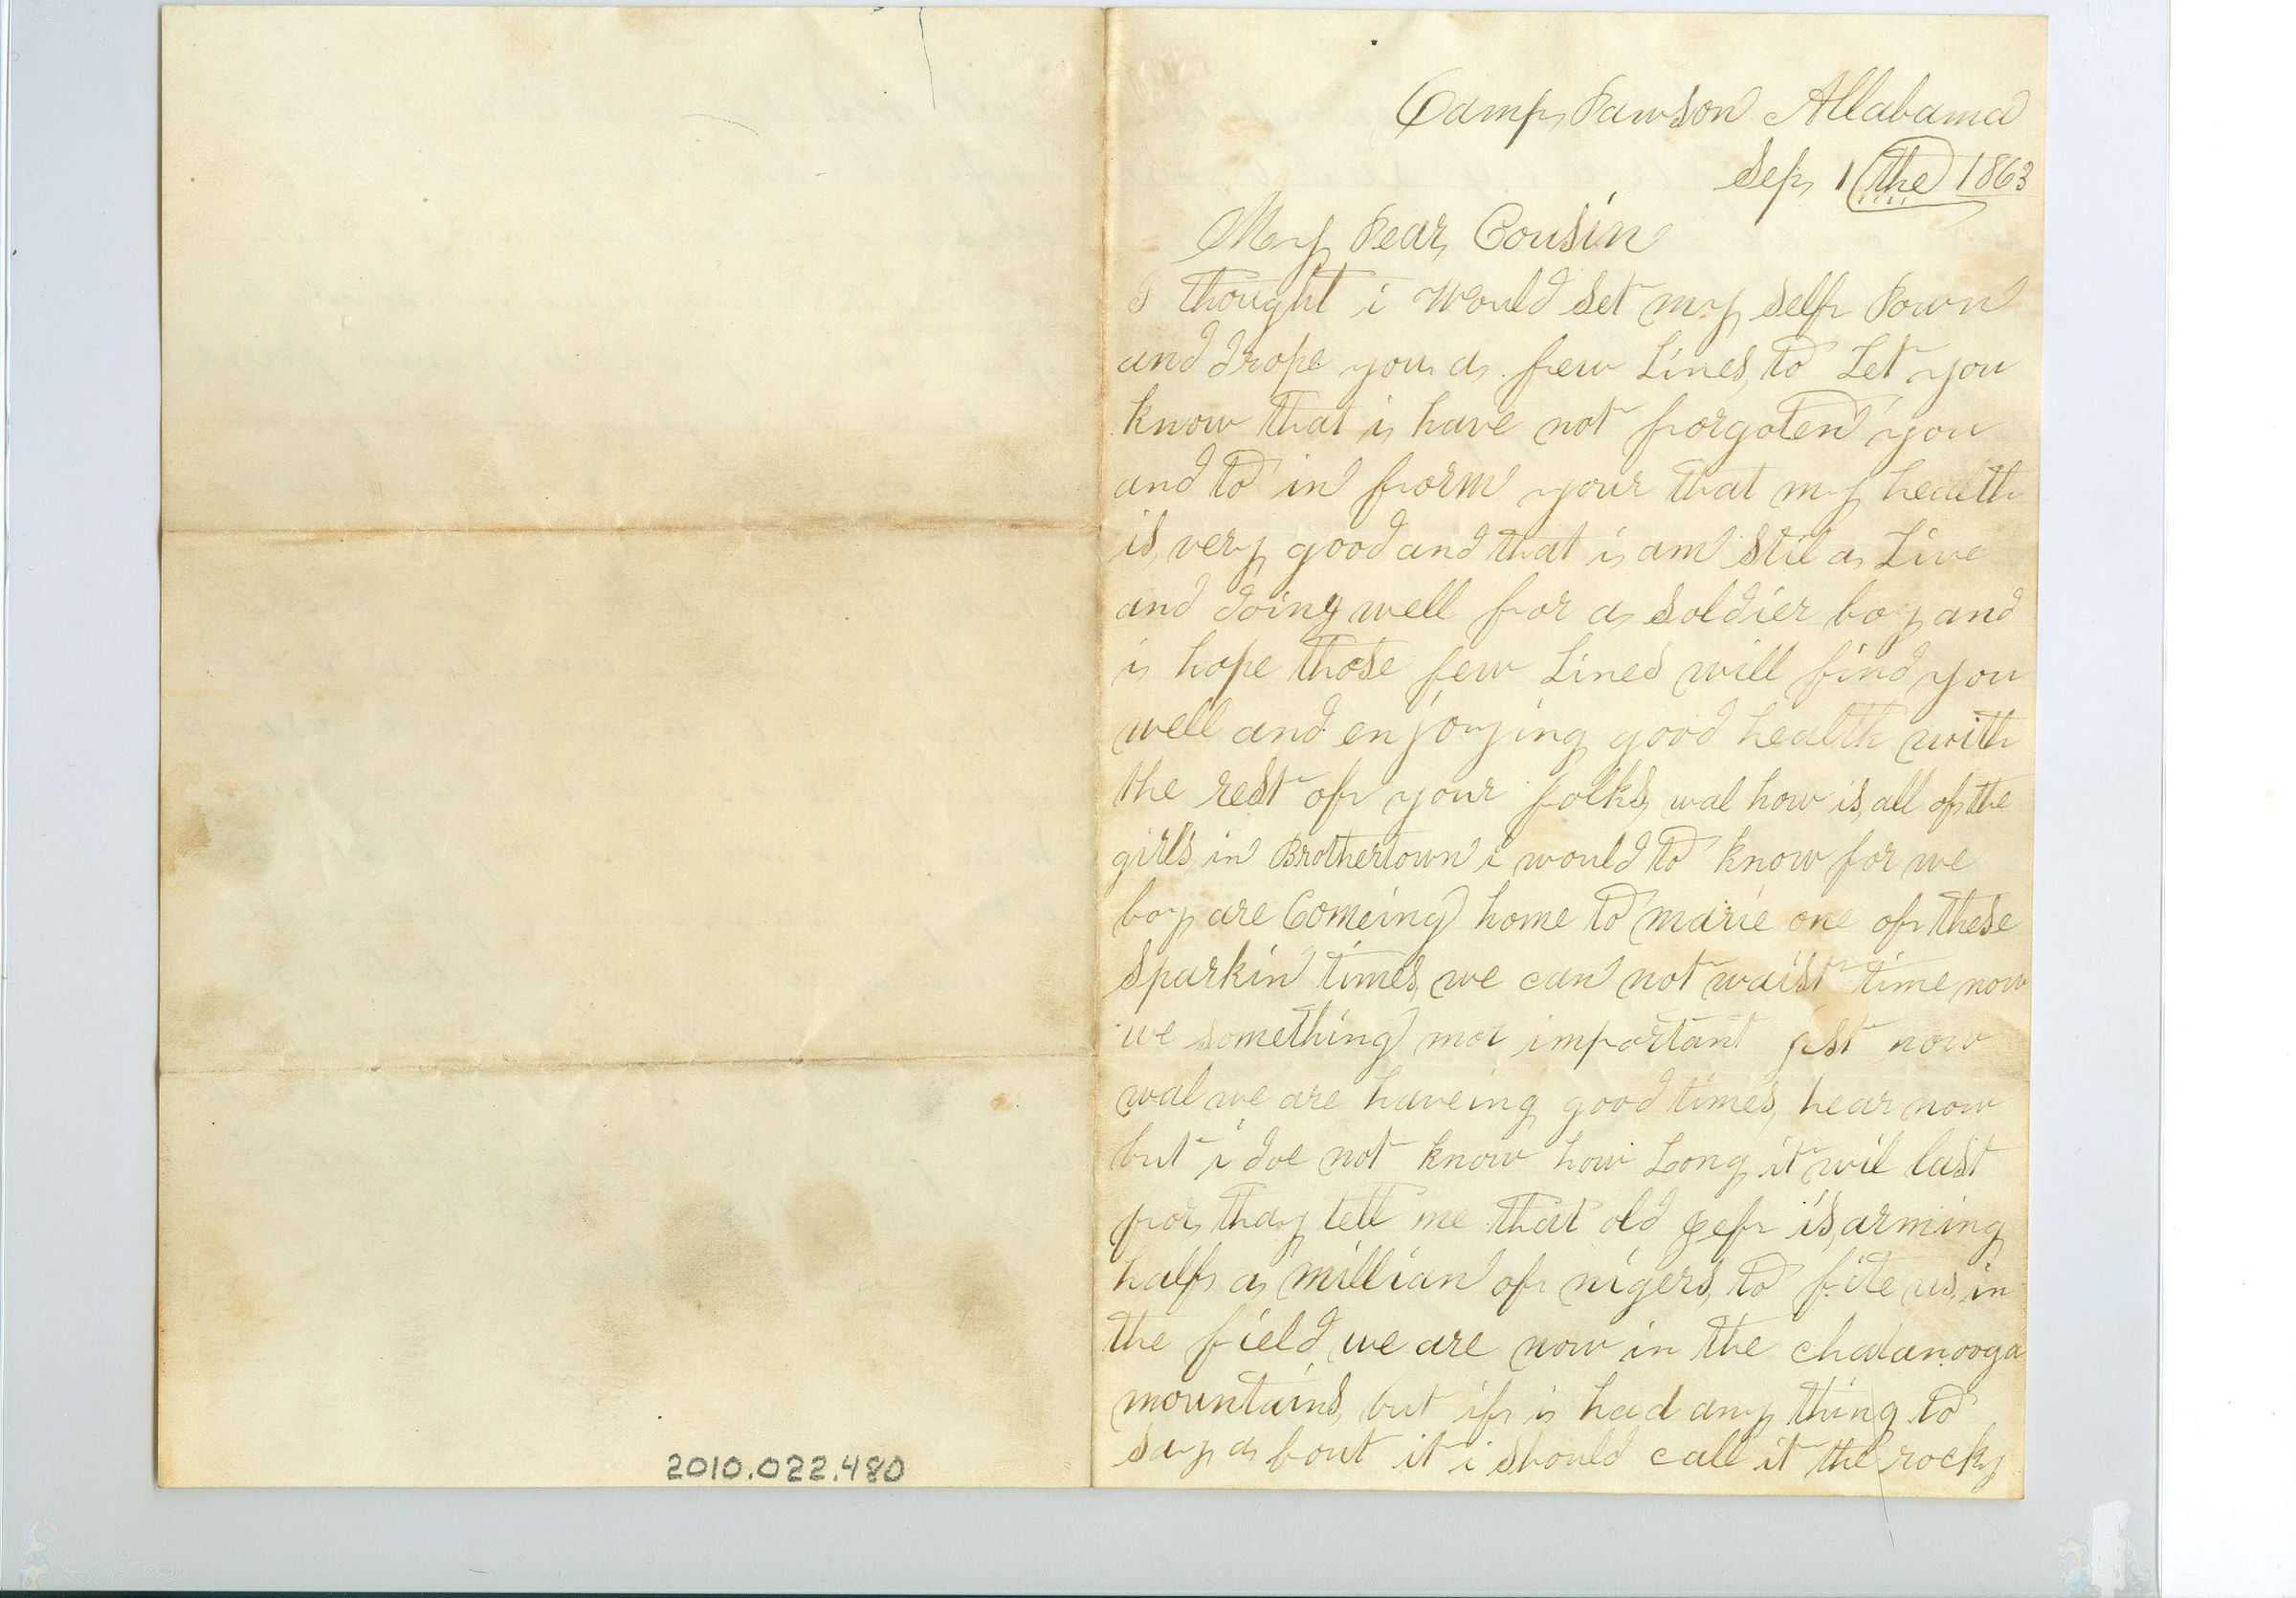 Camp Dawson Allabama
Sep 1 the 1863
My Dear Cousin
I thought i would set my self Down
and drope you a few Lines to Let you
know that i have not forgoten you
and to in form your that my health
is very good and that i am stil a Live
and doing well for a soldier boy and
i hope those few Lines will find you
well and enjoying good health with
the rest of your folks wal how is all of the
girls in Brothertown i would to know for we
boy are Comeing home to marie one of these
sparkin times we can not waist time now
we something mor important jst now
wal we are haveing good times hear now
but i doe not know how Long it wil last
for thay tell me that old jef is arming
half a millian of nigers to fite us in
the field we are now in the chatanooga
mountains but if i had any thing to
say a bout it i should call it the rocky
2010.022.480